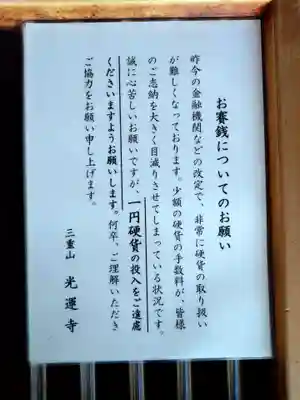 お賽銭についてのお願い
昨今の金融機関などの改定で、非常に硬貨の取り扱い
が難しくなっております。少額の硬貨の手数料が、皆様
のご志納を大きく目減りさせてしまっている状況です。
誠に心苦しいお願いですが、一円硬貨の投入をご遠慮
くださいますようお願いします。何卒、ご理解いただき
ご協力をお願い申し上げます。
三重山 光運寺